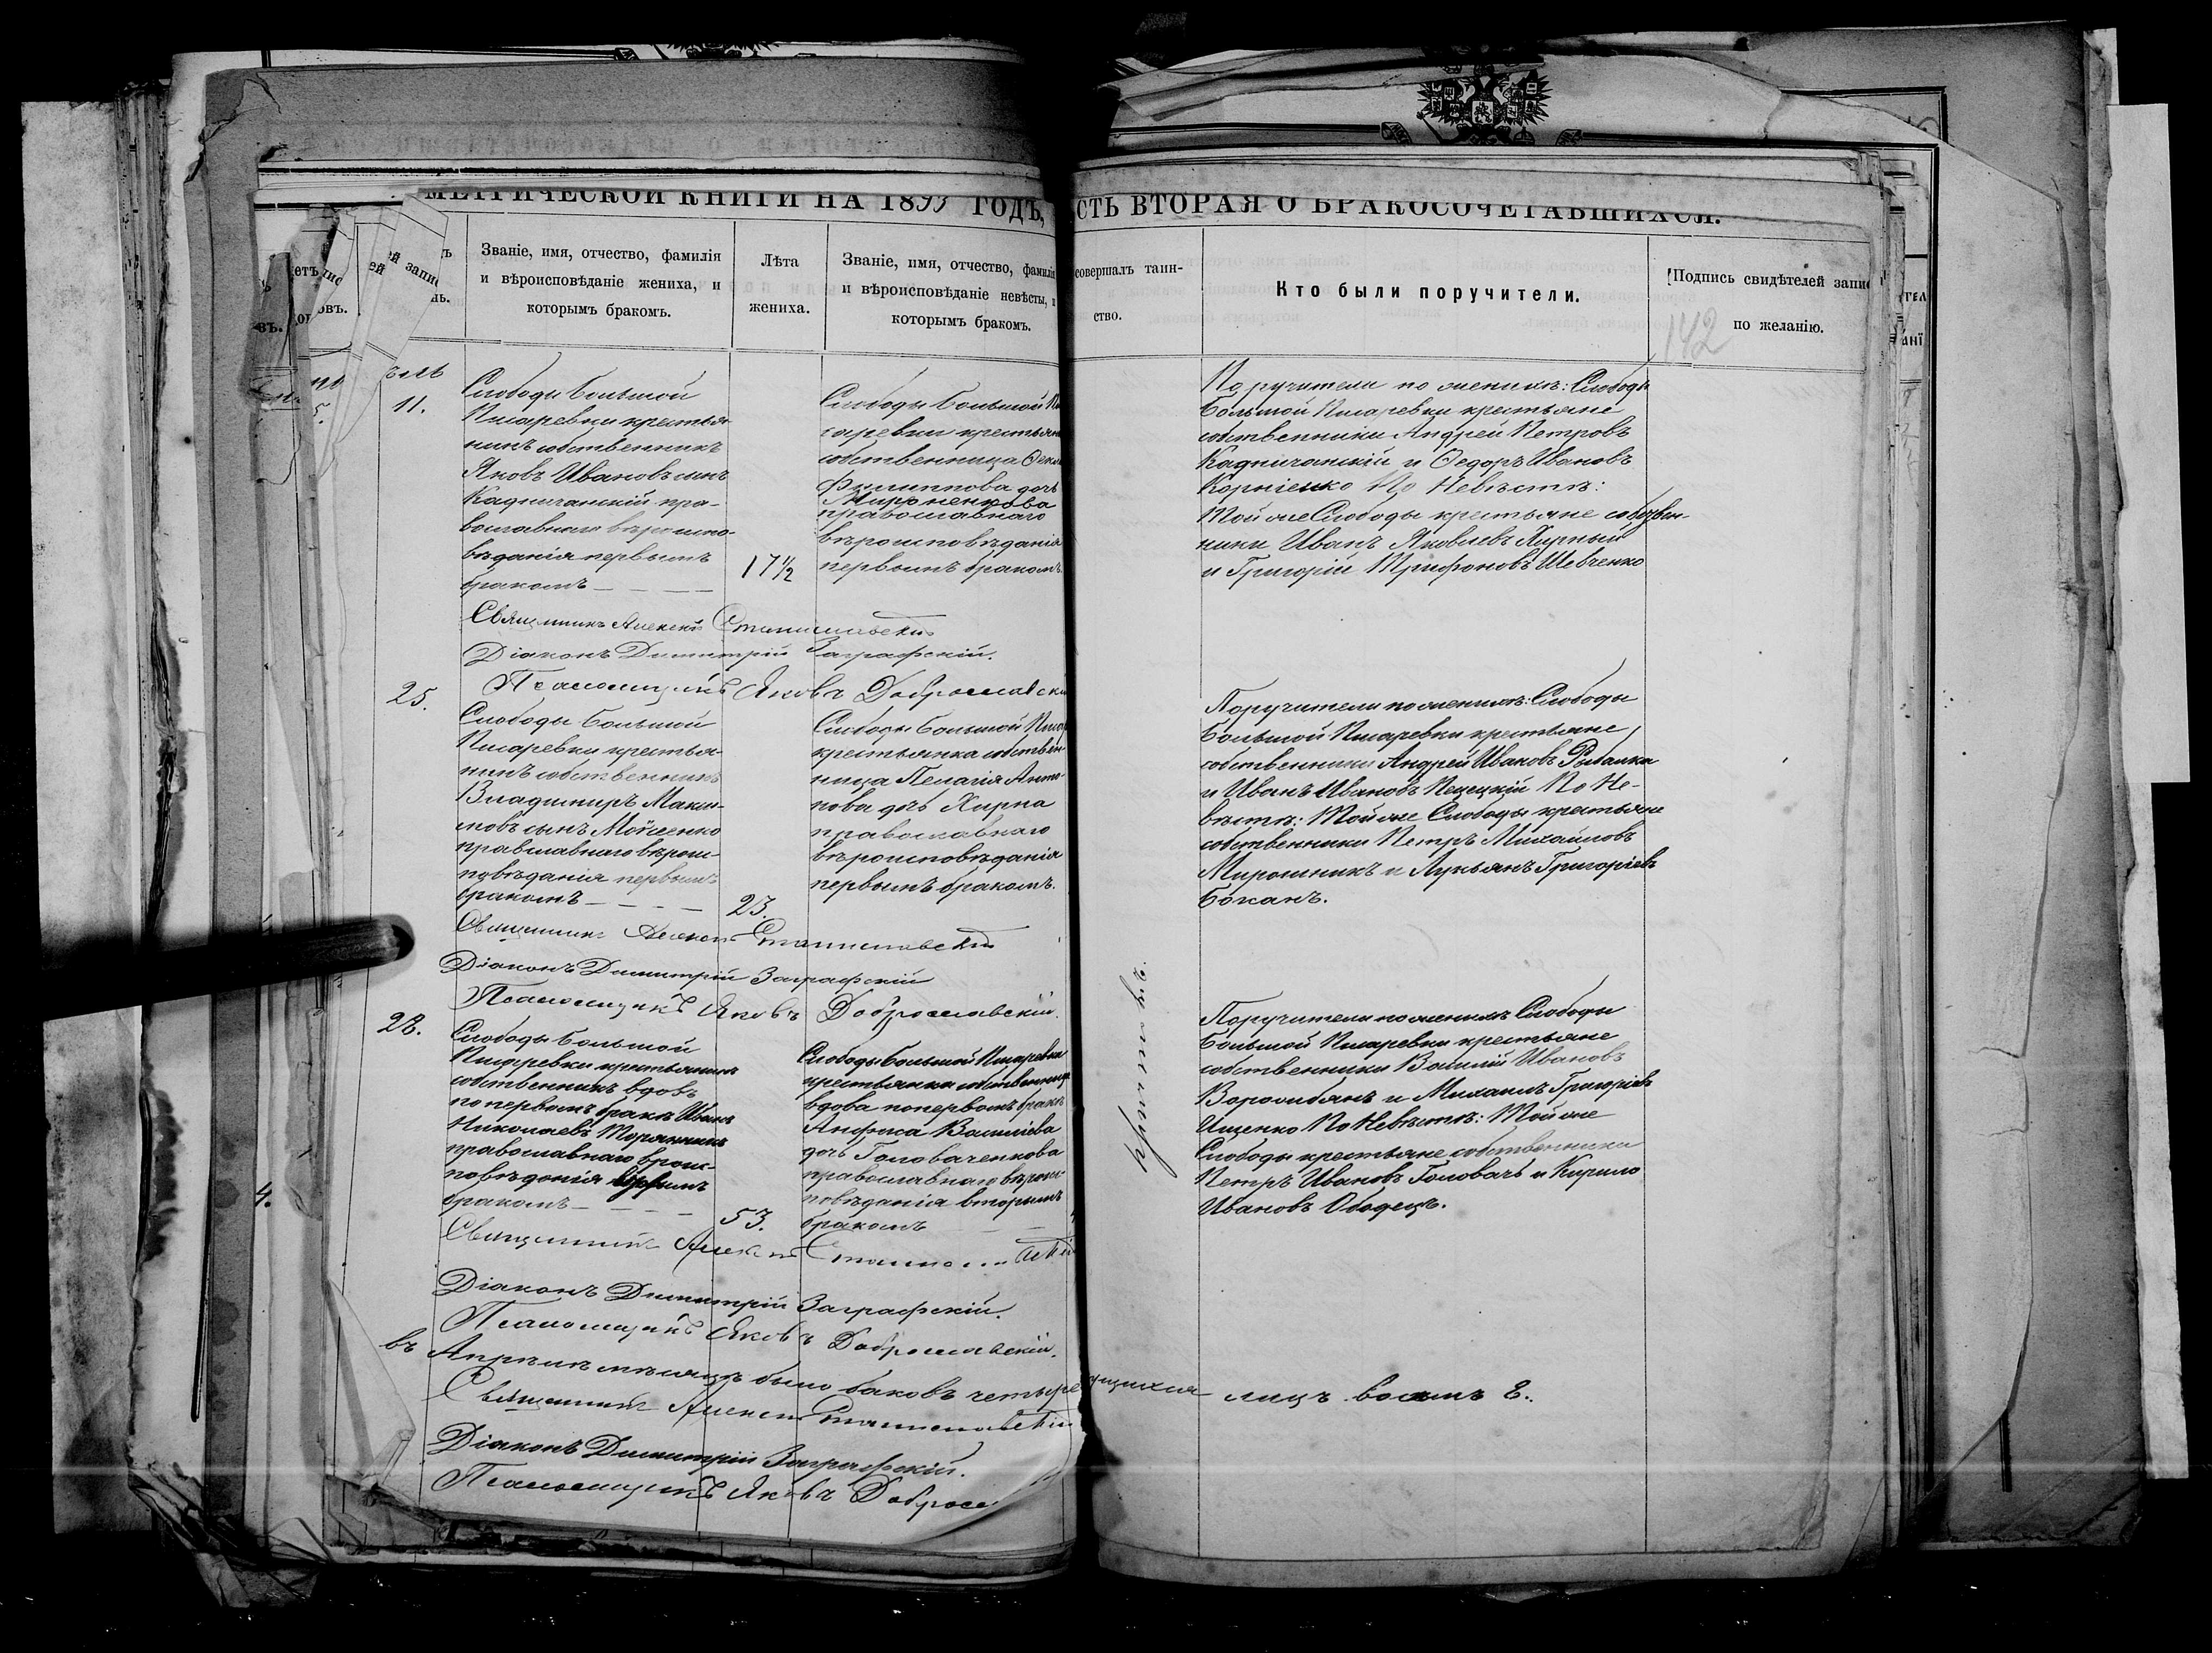 МЕТРИЧЕСКОЙ КНИГИ НА 1893 ГОДЪ,
СТЬ ВТОРАЯ О БРАКОСОЧЕТАВШИХСЯ.
Званіе, имя, отчество, фамилія
и вѣроисповѣданіе жениха, и
которымъ бракомъ.
Лѣта
жениха.
Званіе, имя, отчество, фамилія
и вѣроисповѣданіе невѣсты, и
которымъ бракомъ.
совершалъ таин-
ство.
Кто были поручители.
Подпись свидѣтелей запи
по желанію.
142
11.
Слободы Большой
Писаревки крестья-
нинъ собственникъ
Яковъ Ивановъ сынъ
Кадничанскій пра-
вославнаго вѣроиспо-
вѣданія первымъ
бракомъ
17 1/2
Слободы Большой Пи
саревки крестьян
собственница Ѳекл
Филиппова дочь
Мироненкова
православнаго
вѣроисповѣданія
первымъ бракомъ.
Поручители по женихѣ: Слободы
Большой Писаревки крестьяне
собственники Андрей Петровъ
Кадничанскій и Ѳедоръ Ивановъ
Корніенко По Невѣстѣ:
Той же Слободы крестьяне собствен-
ники Иванъ Яковлевъ Хирный
и Григорій Трифоновъ Шевченко
Священникъ Алексій Станиславскій
Діаконъ Димитрій Заграфскій.
Псаломщикъ Яковъ Доброславскі
25.
Слободы Большой
Писаревки крестья-
нинъ собственникъ
Владимиръ Макси-
мовъ сынъ Мойсенко
православнаго вѣрои-
повѣданія первымъ
бракомъ
23.
Слободы Большой Писар
крестьянка собствен-
ница Пелагія Анто-
нова дочь Хирна
православнаго
вѣроисповѣданія
первымъ бракомъ.
Поручители по женихѣ: Слободы
Большой Писаревки крестьяне
собственники Андрей Ивановъ Рыбалка
и Иванъ Ивановъ Пецецкій По Не-
вѣстѣ: Той же Слободы крестьяне
собственники Петръ Михайловъ
Мирошникъ и Лукьянъ Григоріевъ
Боканъ.
Священникъ Алексій Станиславскій
Діаконъ Димитрій Заграфскій
Псаломщикъ Яковъ Доброславскій.
28.
Слободы Большой
Писаревки крестьянинъ
собственникъ вдовъ
по первомъ бракѣ Иванъ
Николаевъ
православнаго вроис-
повѣданія вторымъ
бракомъ
53.
Слободы Большой Писаревки
крестьянка собственница
вдова по первомъ бракѣ
Анфиса Василіева
дочь Головаченкова
православнаго вѣроис-
повѣданія вторымъ
бракомъ
Поручители по женихѣ Слободы
Большой Писаревки крестьяне
собственники Василій Ивановъ
Ворожбянъ и Михаилъ Григоріевъ
Ищенко По Невѣстѣ: Той же
Слободы крестьяне собственники
Петръ Ивановъ Головачъ и Кирило
Ивановъ Ободецъ.
Священникъ Алексій Станиславскій
Діаконъ Димитрій Заграфскій.
Псаломщикъ Яковъ Доброславскій.
въ Апрѣлѣ мѣсяцѣ было баковъ четыре
щихся лицъ восемь 8.
Священникъ Алексій Станиславскій
Діаконъ Димитрій Заграфскій.
Псаломщикъ Яковъ Доброс
4.